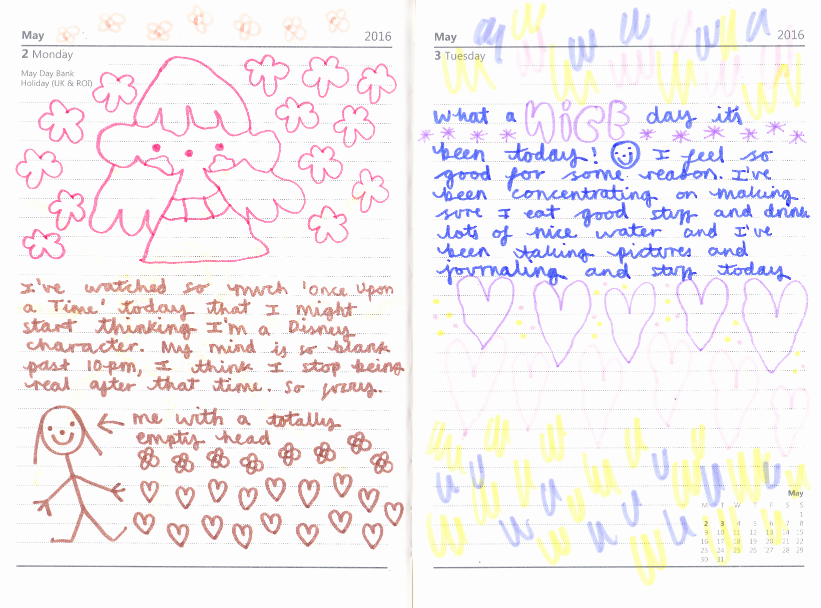 May 2016
2 Monday
May Day Bank
Holiday (UK & ROI)
I've watched so much 'Once Upon
a Time' today that I might
start thinking I'm a Disney
character. My mind is so blank
past 10pm, I think I stop being
real after that time. So fuzzy.
me with a totally
empty head
May 2016
3 Tuesday
What a NiCE day it's
been today! I feel so
good for some reason. I've
been concentrating on making
sure I eat good stuff and drink
lots of nice water and I've
been taking pictures and
journaling and stuff today
May
M T W T F S S
1
2 3 4 5 6 7 8
9 10 11 12 13 14 15
16 17 18 19 20 21 22
23 24 25 26 27 28 29
30 31